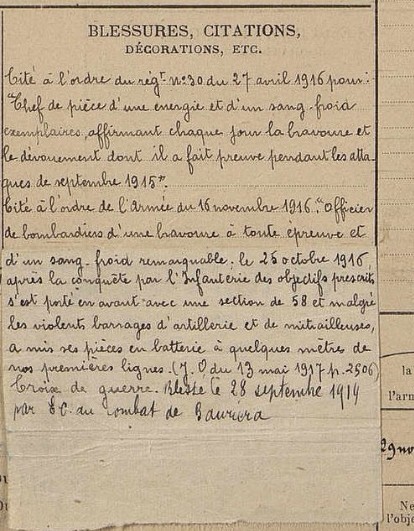 BLESSURES, CITATIONS,
DÉCORATIONS, ETC.
Cité à l'ordre du régt n° 30 du 27 avril 1916 pour:
"Chef de pièce d'une energie et d'un sang-froid
exemplaires, affirmant chaque jour la bravoure et
le dévouement dont il a fait preuve pendant les atta-
ques de septembre 1915".
Cité à l'ordre de l'Armée du 16 novembre 1916. "Officier
de bombardiers d'une bravoure à toute épreuve et
d'un sang-froid remarquable. le 25 octobre 1916
après la conquète par l'Infanterie des objectifs prescrits
s'est porté en avant avec une section de 58 et malgré
les violents barrages d'artillerie et de mitrailleuses,
a mis ses pièces en batterie à quelques mètres de
nos premières lignes. (J. O du 13 mai 1917 p. 2506)
Croix de guerre. Blessé le 28 septembre 1914
par du combat de
la
l'arm
29 no
Ne
l'obje